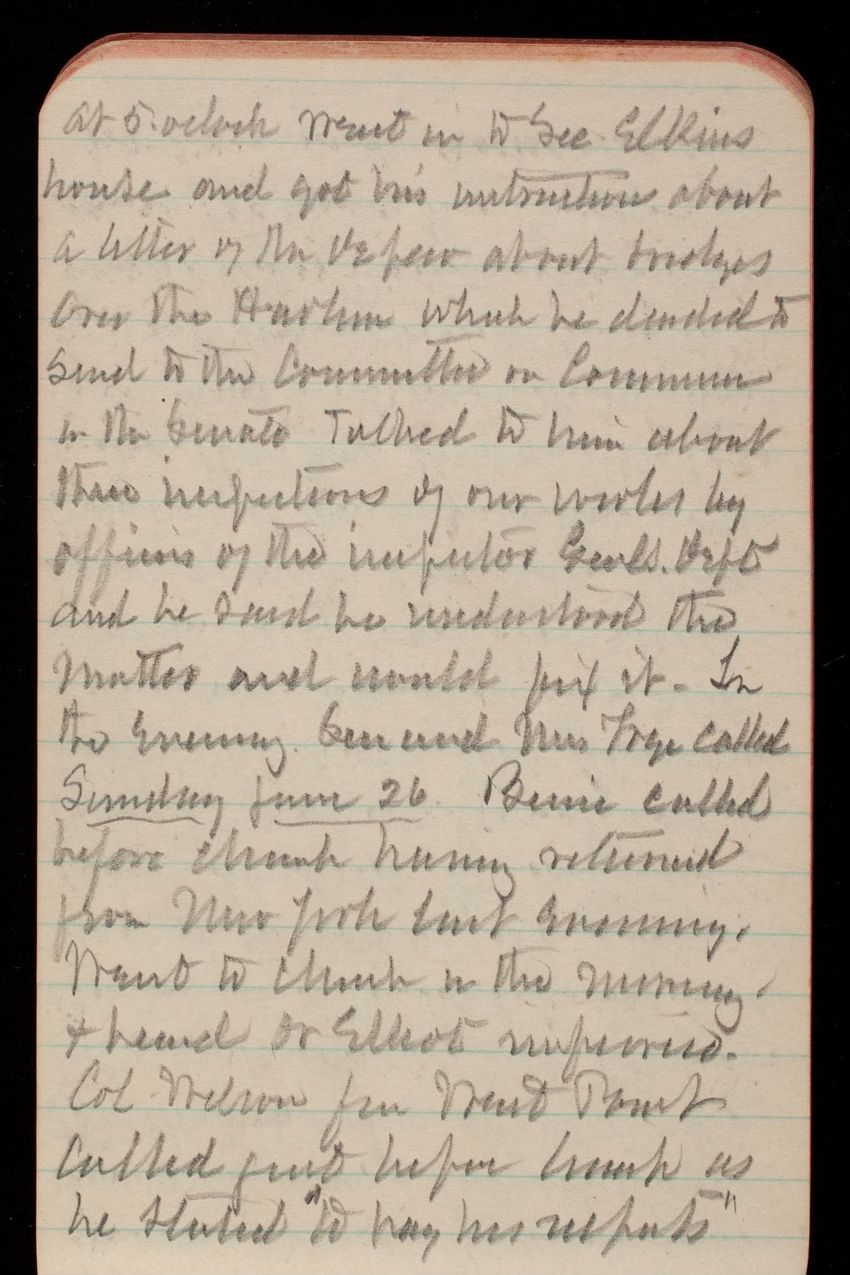 at 5.oclock Went in to Sec Elkins
house and got his instructions about
a letter of Mr Depew about bridges
over the Harlem which he decided to
send to the Committee on Commerce
in the Senate Talked to him about
these inspections of our works by
officers of the inspector Genls. Dept
and he said he understood the
matter and would fix it - In
the evening Gen and Mrs called
Sunday June 26 called
before church having returned
from New York last evening.
Went to church in the morning.
+ heard Dr Elliot
Col Wilson from West Point
called just before lunch as
he stated "to pay his respects"